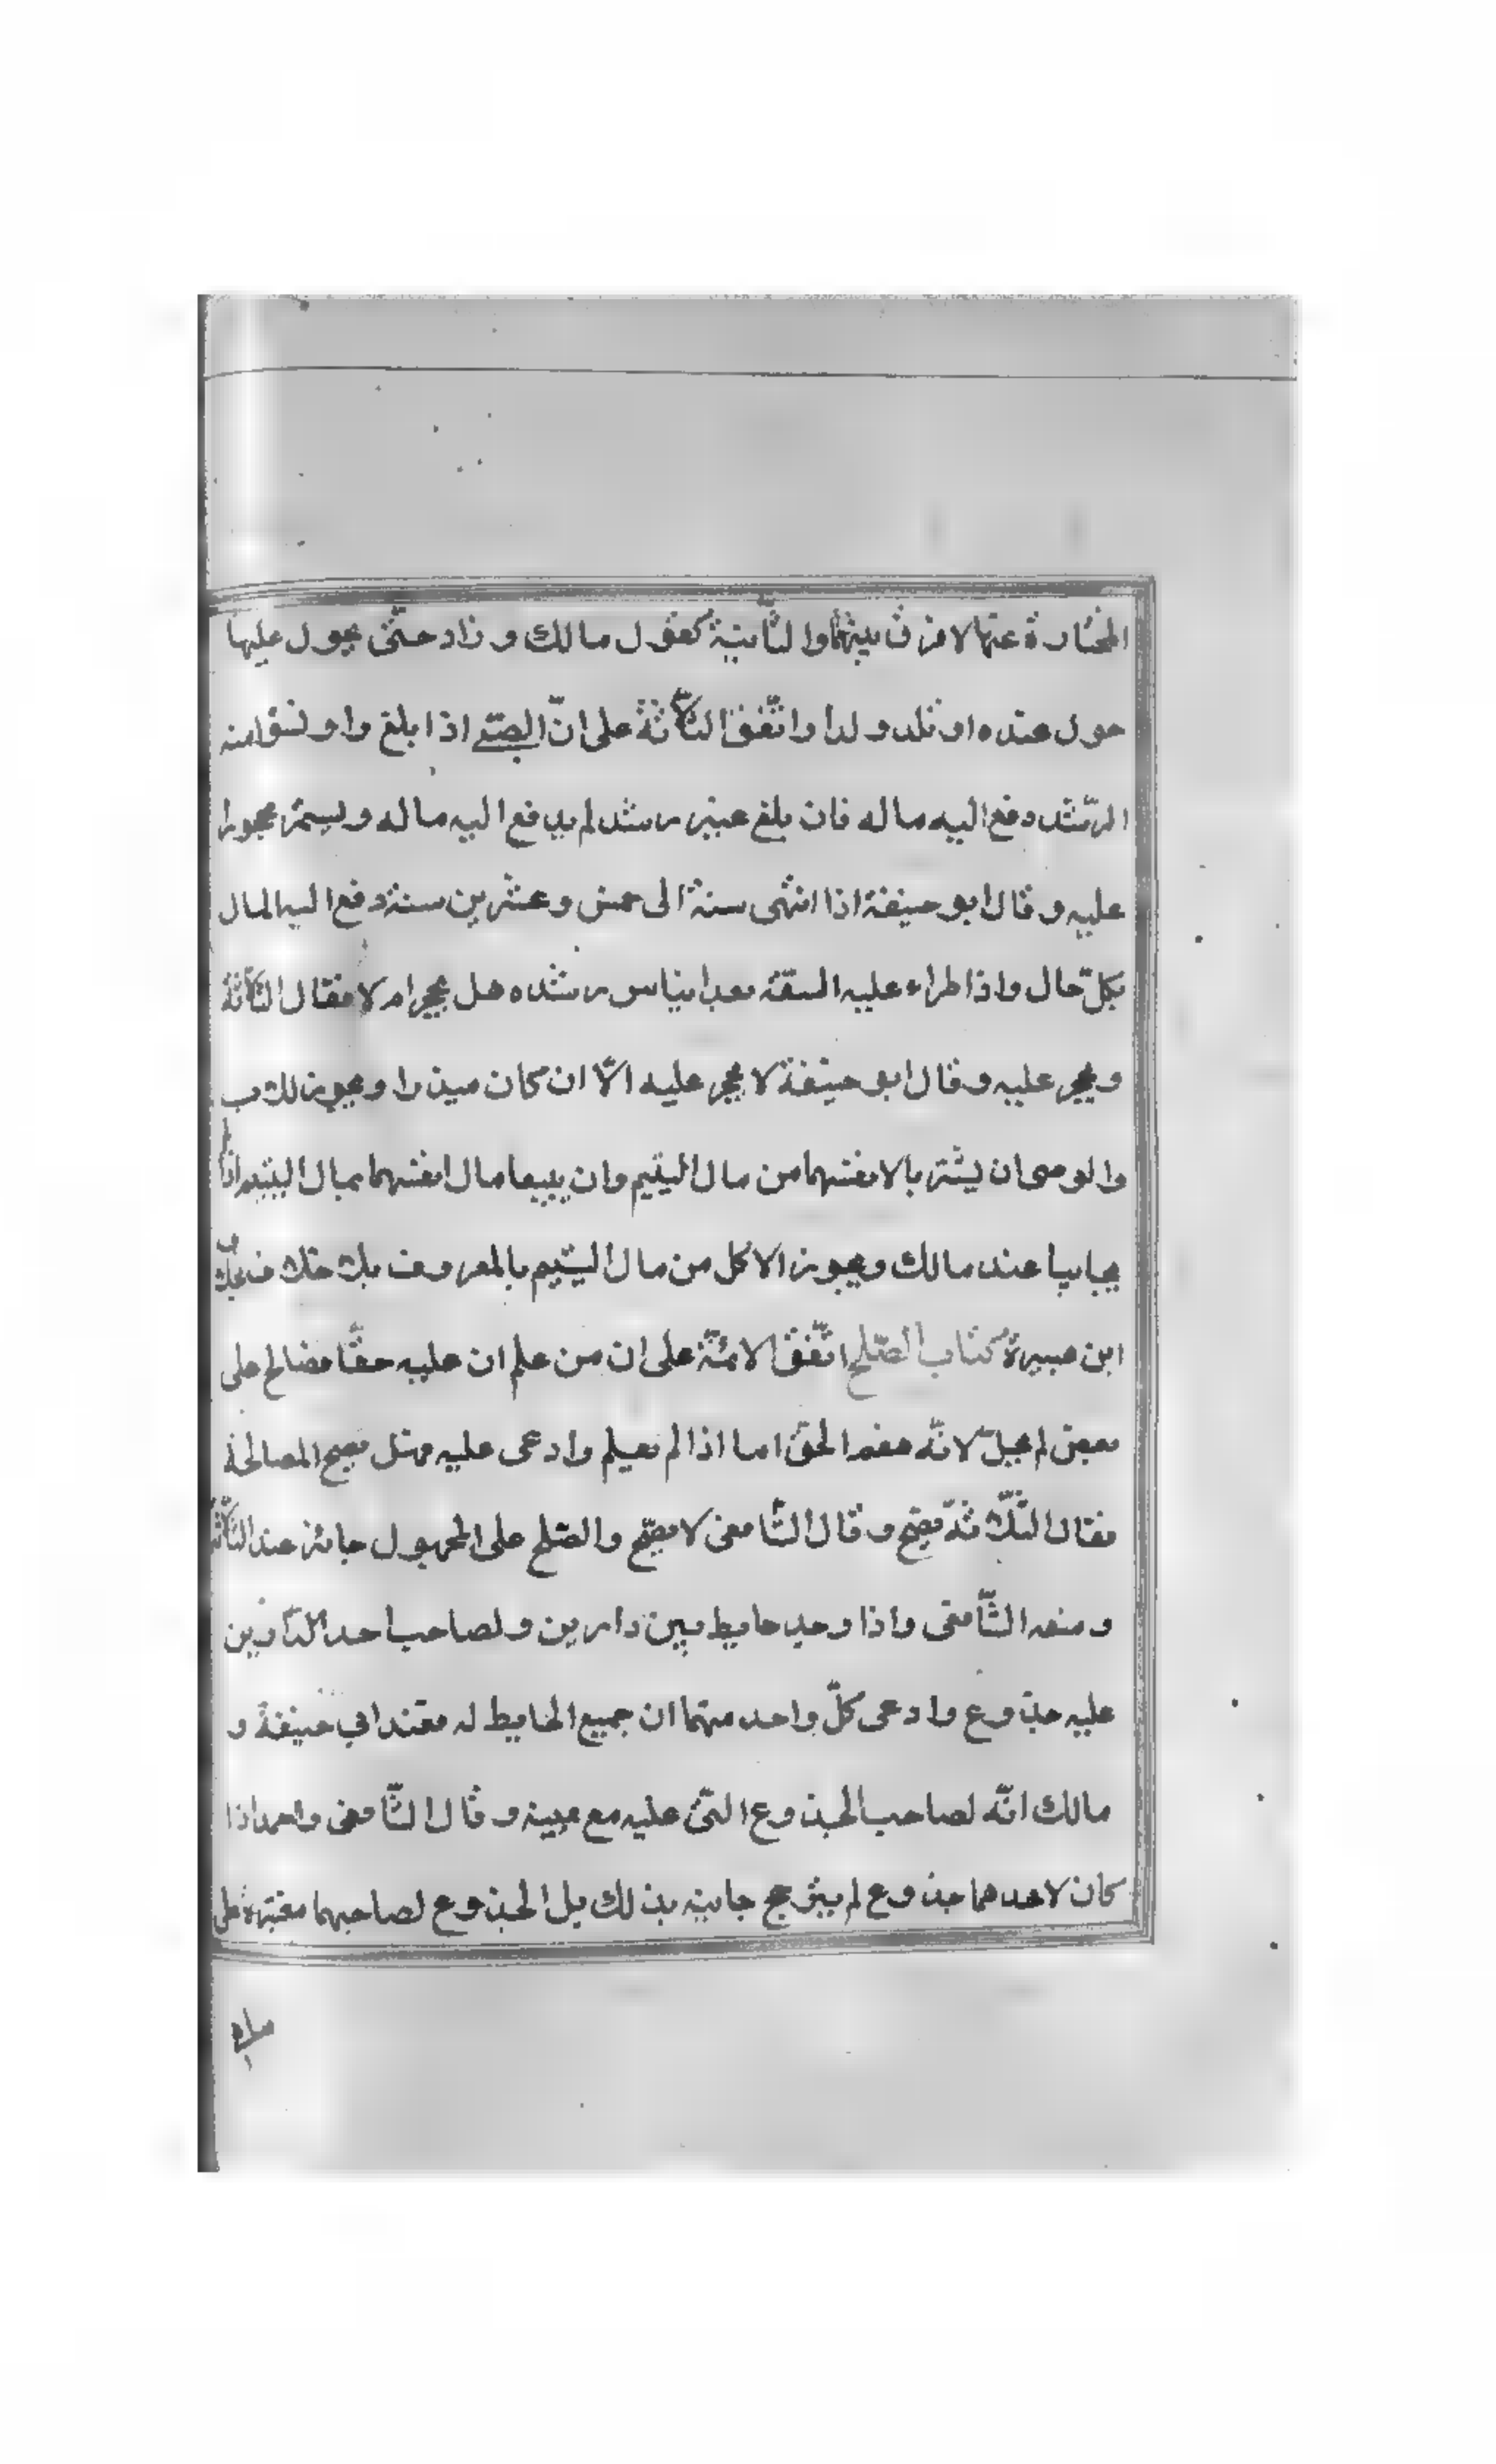 المختارة عنها لا فرق بينهما والثانية كقول مالك وزاد حتى يحول عليها
حول عنده او تلد ولدا واتفق الثلاثة على ان الصبى اذا بلغ واونس منه
الرشد دفع اليه ماله فان بلغ غير رشد لم يدفع اليه ماله ويستمر محجورا
عليه وقال ابو حنيفة اذا انتهى سنة الى خمس وعشرين سنة دفع اليه المال
بكل حال واذا طراء عليه السفه بعد ايناس رشده هل يحجر ام لا فقال الثلاثة
ويحجر عليه وقال ابو حنيفة لا يحجر عليه الا ان كان مبذرا ويجوز للاب
والوصى ان يشتريا لانفسهما من مال اليتيم وان يبيعا مال انفسهما بمال اليتيم اذا لم
يحابيا عند مالك ويجوز الاكل من مال اليتيم بالمعروف
ابن هبيرة كتاب الصلح اتفق الائمة على ان من علم ان عليه حقا فصالح على
بعض لم يحل لانه هضم الحق اما اذا لم يعلم وادعى عليه فهل تصح المصالحة
فقال الثلاثة تصح وقال الشافعى لا تصح والصلح على المجهول جائز عند الثلاثة
ومنعه الشافعى واذا وجد حايط بين دارين ولصاحب احد الدارين
عليه جذوع وادعى كل واحد منهما ان جميع الحايط له فعند ابى حنيفة و
مالك انه لصاحب الجذوع التى عليه مع يمينه وقال الشافعى واحمد اذا
كان لاحدهما جذوع لم يترجح جانبه بذلك بل الجذوع لصاحبهما مقتبرة على